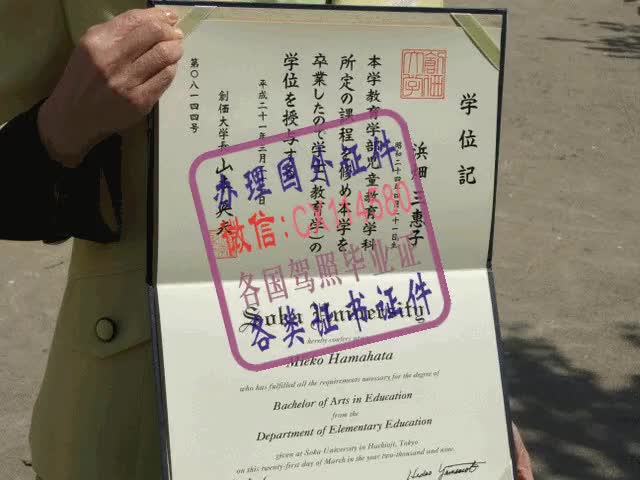 学位記
浜畑 三恵子
昭和二十四年四月十一日生
本学教育学部児童教育学科
所定の課程を修め本学を
卒業したので学士(教育学)の
学位を授与す
平成二十一年三月
創価大学長 山
第〇八一四四号
創価
大学
办理国外证件
微信:CX114580
各国驾照毕业证
各类证书证件
Soka University
hereby confers
Mieko Hamahata
who has fulfilled all the requirements necessary for the degree of
Bachelor of Arts in Education
from the
Department of Elementary Education
given at Soka University in Hachioji, Tokyo
on this twenty-first day of March in the year two-thousand and nine.